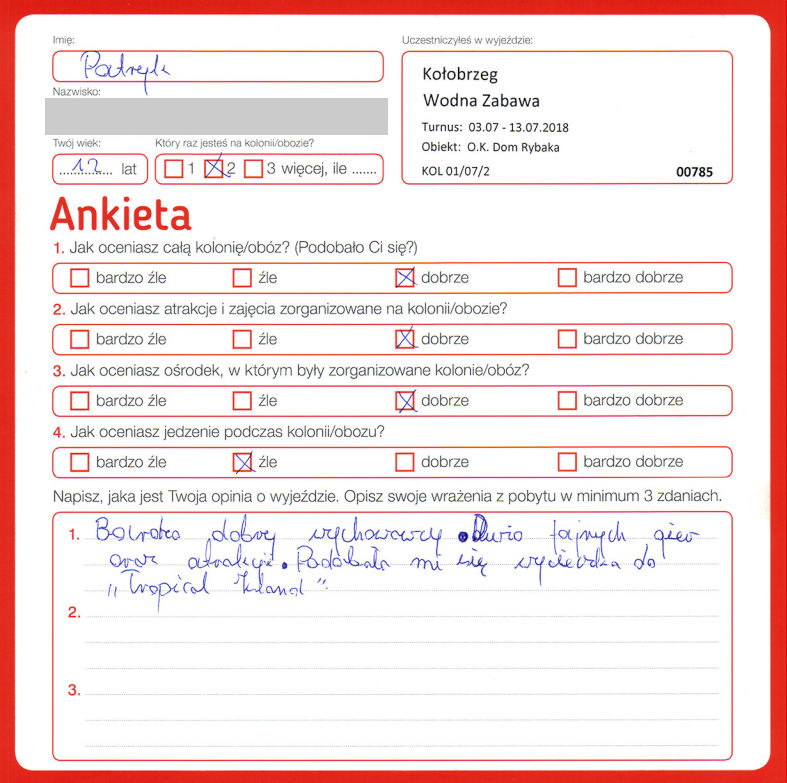 Imię:
Patryk
Nazwisko:
Twój wiek:
12 lat
Który raz jesteś na kolonii/obozie?
1 2 3 więcej, ile .......
Uczestniczyłeś w wyjeździe:
Kołobrzeg
Wodna Zabawa
Turnus: 03.07 - 13.07.2018
Obiekt: O.K. Dom Rybaka
KOL 01/07/2 00785
Ankieta
1. Jak oceniasz całą kolonię/obóz? (Podobało Ci się?)
bardzo źle źle dobrze bardzo dobrze
2. Jak oceniasz atrakcje i zajęcia zorganizowane na kolonii/obozie?
bardzo źle źle dobrze bardzo dobrze
3. Jak oceniasz ośrodek, w którym były zorganizowane kolonie/obóz?
bardzo źle źle dobrze bardzo dobrze
4. Jak oceniasz jedzenie podczas kolonii/obozu?
bardzo źle źle dobrze bardzo dobrze
Napisz, jaka jest Twoja opinia o wyjeździe. Opisz swoje wrażenia z pobytu w minimum 3 zdaniach.
1. dobry wychowawcy fajnych gier
oraz atrakcji. Podobała mi się wycieczka do
"Tropical Island".
2.
3.